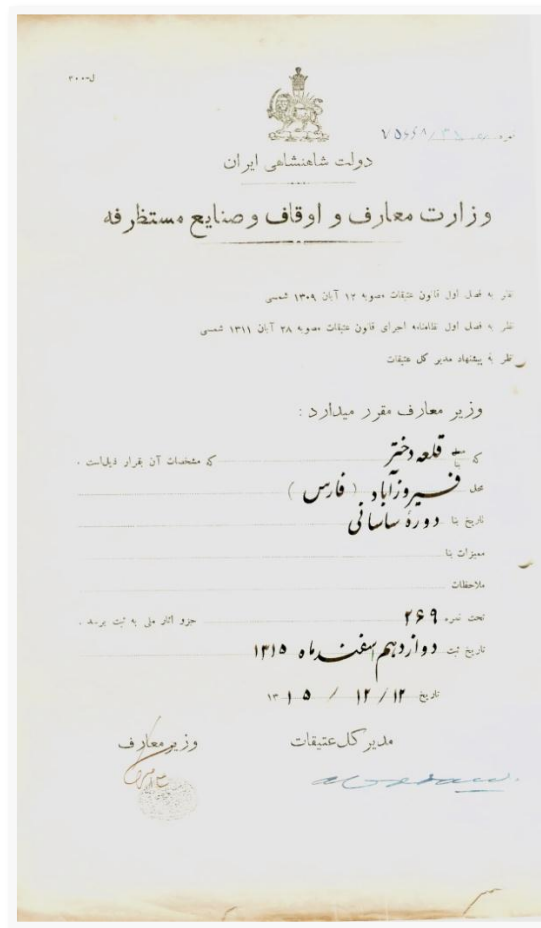 ل-۲۰۰
نمره
دولت شاهنشاهی ایران
وزارت معارف و اوقاف و صنایع مستظرفه
نظر به فصل اول قانون عتیقات مصوبه ۱۲ آبان ۱۳۰۹ شمسی
نظر به فصل اول نظامنامه اجرای قانون عتیقات مصوبه ۲۸ آبان ۱۳۱۱ شمسی
نظر به پیشنهاد مدیر کل عتیقات
وزیر معارف مقرر میدارد :
که بنا قلعه دختر که مشخصات آن بقرار ذیل است .
محل فیروزآباد (فارس)
تاریخ بنا دورهٔ ساسانی
ممیزات بنا
ملاحظات
تحت نمره ۲۶۹ جزو آثار ملی به ثبت برسد .
تاریخ ثبت دوازدهم اسفند ماه ۱۳۱۵
تاریخ ۱۲ / ۱۲ / ۱۳۱۵
مدیر کل عتیقات
وزیر معارف